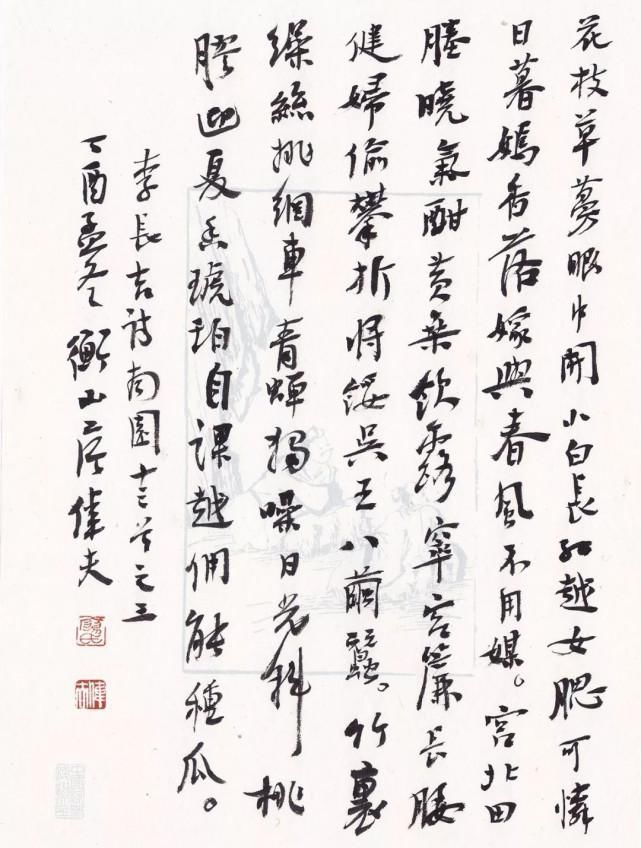 花枝草蔓眼中開小白長紅越女腮可憐
日暮嫣香落嫁與春風不用媒。宮北田
塍曉氣酣黃桑飲露窣宮簾長腰
健婦偷攀折將餧吳王八繭蠶。竹裏
繰絲挑網車青蟬獨噪日光斜桃
膠迎夏香琥珀自課越佣能種瓜。
李長吉詩南園十三首之三
丁酉孟冬衡山偉夫